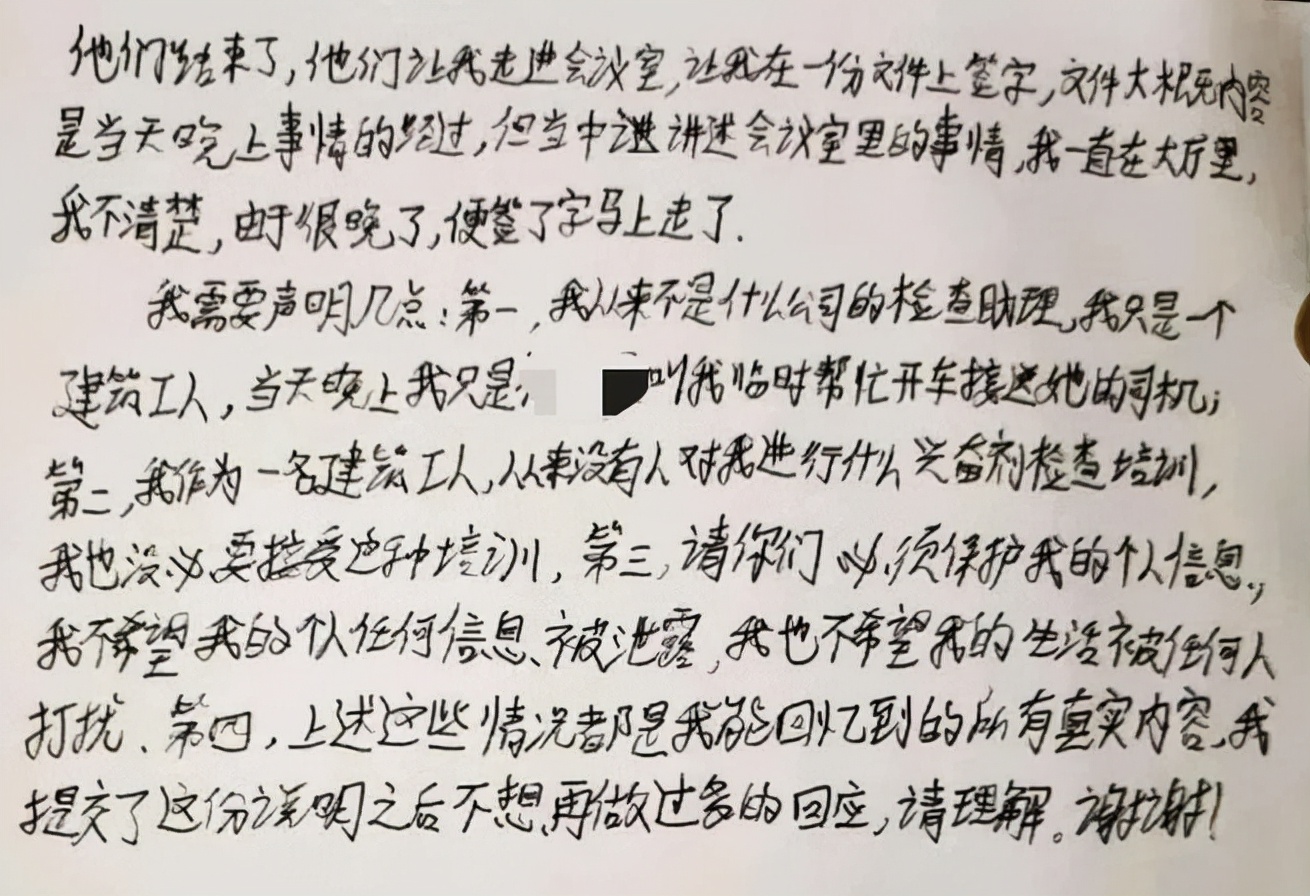 他们结束了,他们让我走进会议室,让我在一份文件上签字,文件大概内容
是当天晚上事情的经过,但当中讲述会议室里的事情,我一直在大厅里,
我不清楚,由于很晚了,便签了字马上走了.
我需要声明几点:第一,我从来不是什么公司的检查助理,我只是一个
建筑工人,当天晚上我只是 叫我临时帮忙开车接送她的司机;
第二,我作为一名建筑工人,从来没有人对我进行什么兴奋剂检查培训,
我也没必要接受这种培训,第三,请你们必须保护我的个人信息,
我不希望我的个人任何信息被泄露,我也不希望我的生活被任何人
打扰、第四,上述这些情况都是我能回忆到的所有真实内容,我
提交了这份说明之后不想再做过多的回应,请理解。谢谢!